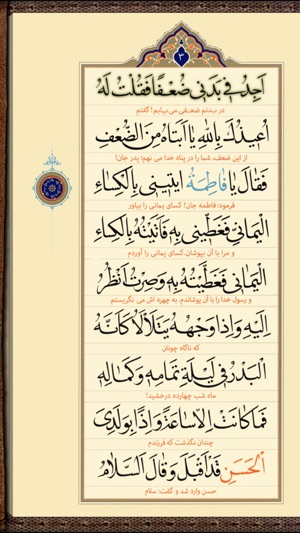 ۳
اَجِدُ فی بَدَنی ضُعْفاً فَقُلْتُ لَهُ
در بدنم ضعفی می‌یابم! گفتم
اُعیذُکَ بِاللهِ یا اَبَتاهُ مِنَ الضُّعْفِ
از این ضعف، شما را در پناه خدا می نهم؛ پدر جان!
فَقَالَ یا فاطِمَةُ ایتینی بِالْکِساءِ
فرمود: فاطمه جان! کسای یمانی را بیاور
الْیَمانی فَغَطّینی بِهِ فَاَتَیْتُهُ بِالْکِساءِ
و مرا با آن بپوشان.کسای یمانی را آوردم
الْیَمانی فَغَطَّیْتُهُ بِهِ وَصِرْتُ اَنْظُرُ
و رسول خدا را با آن پوشاندم. به چهره اش می نگریستم
اِلَیْهِ وَاِذا وَجْهُهُ یَتَلَأْلَأُ کَاَنَّهُ
که ناگاه چونان
الْبَدْرُ فی لَیْلَةِ تَمامِهِ وَکَمالِهِ
ماه شب چهارده درخشید!
فَماکانَتْ اِلاّساعَةً وَاِذا بِوَلَدِیَ
چندان نگذشت که فرزندم
الْحَسَنِ قَدْ اَقْبَلَ وَقالَ السَّلامُ
حسن وارد شد و گفت: سلام